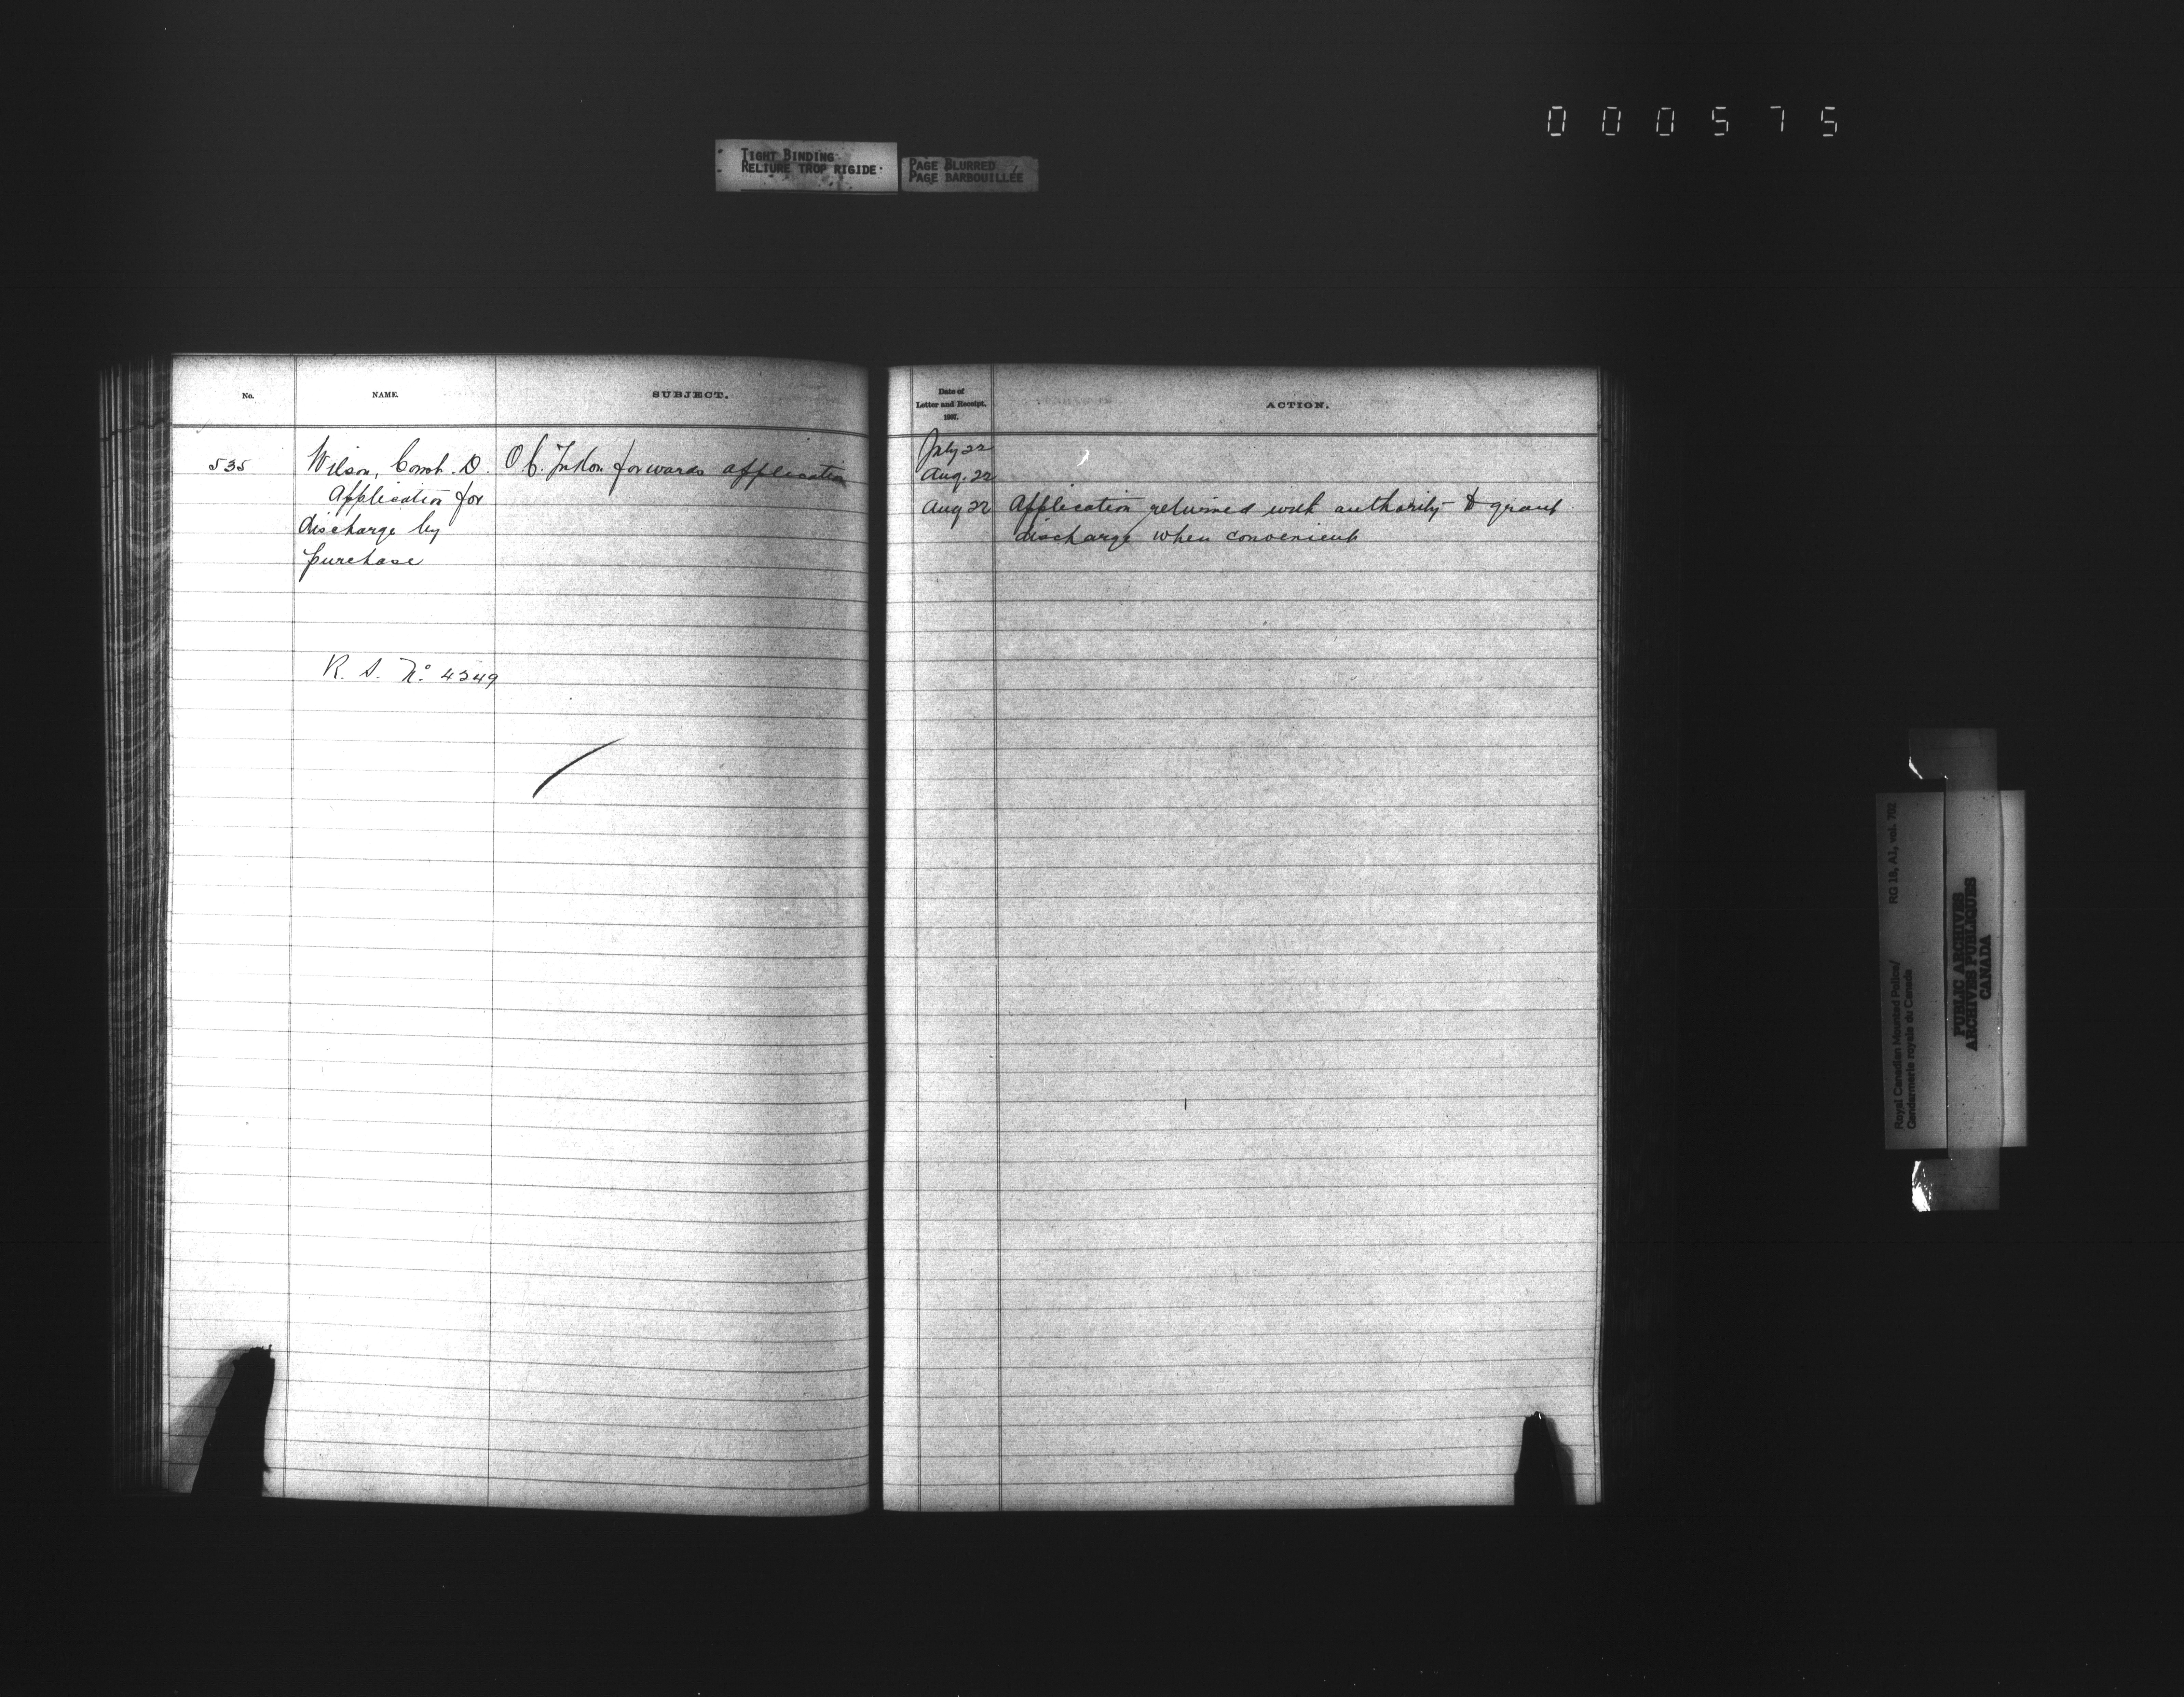 000575
TIGHT BINDING
RELIURE TROP RIGIDE
PAGE BLURRED
PAGE BARBOUILLÉE
No.
NAME.
SUBJECT.
535
Wilson, Const. D.
Application for
discharge by
purchase
R. S. No. 4349
O.C. Yukon forwards application
Date of
Letter and Receipt.
1897.
ACTION.
July 22
Aug. 22
Aug 22 Application returned with authority to grant
discharge when convenient
Royal Canadian Mounted Police/
Gendarmerie royale du Canada
RG 18, A1, vol. 702
PUBLIC ARCHIVES
ARCHIVES PUBLIQUES
CANADA